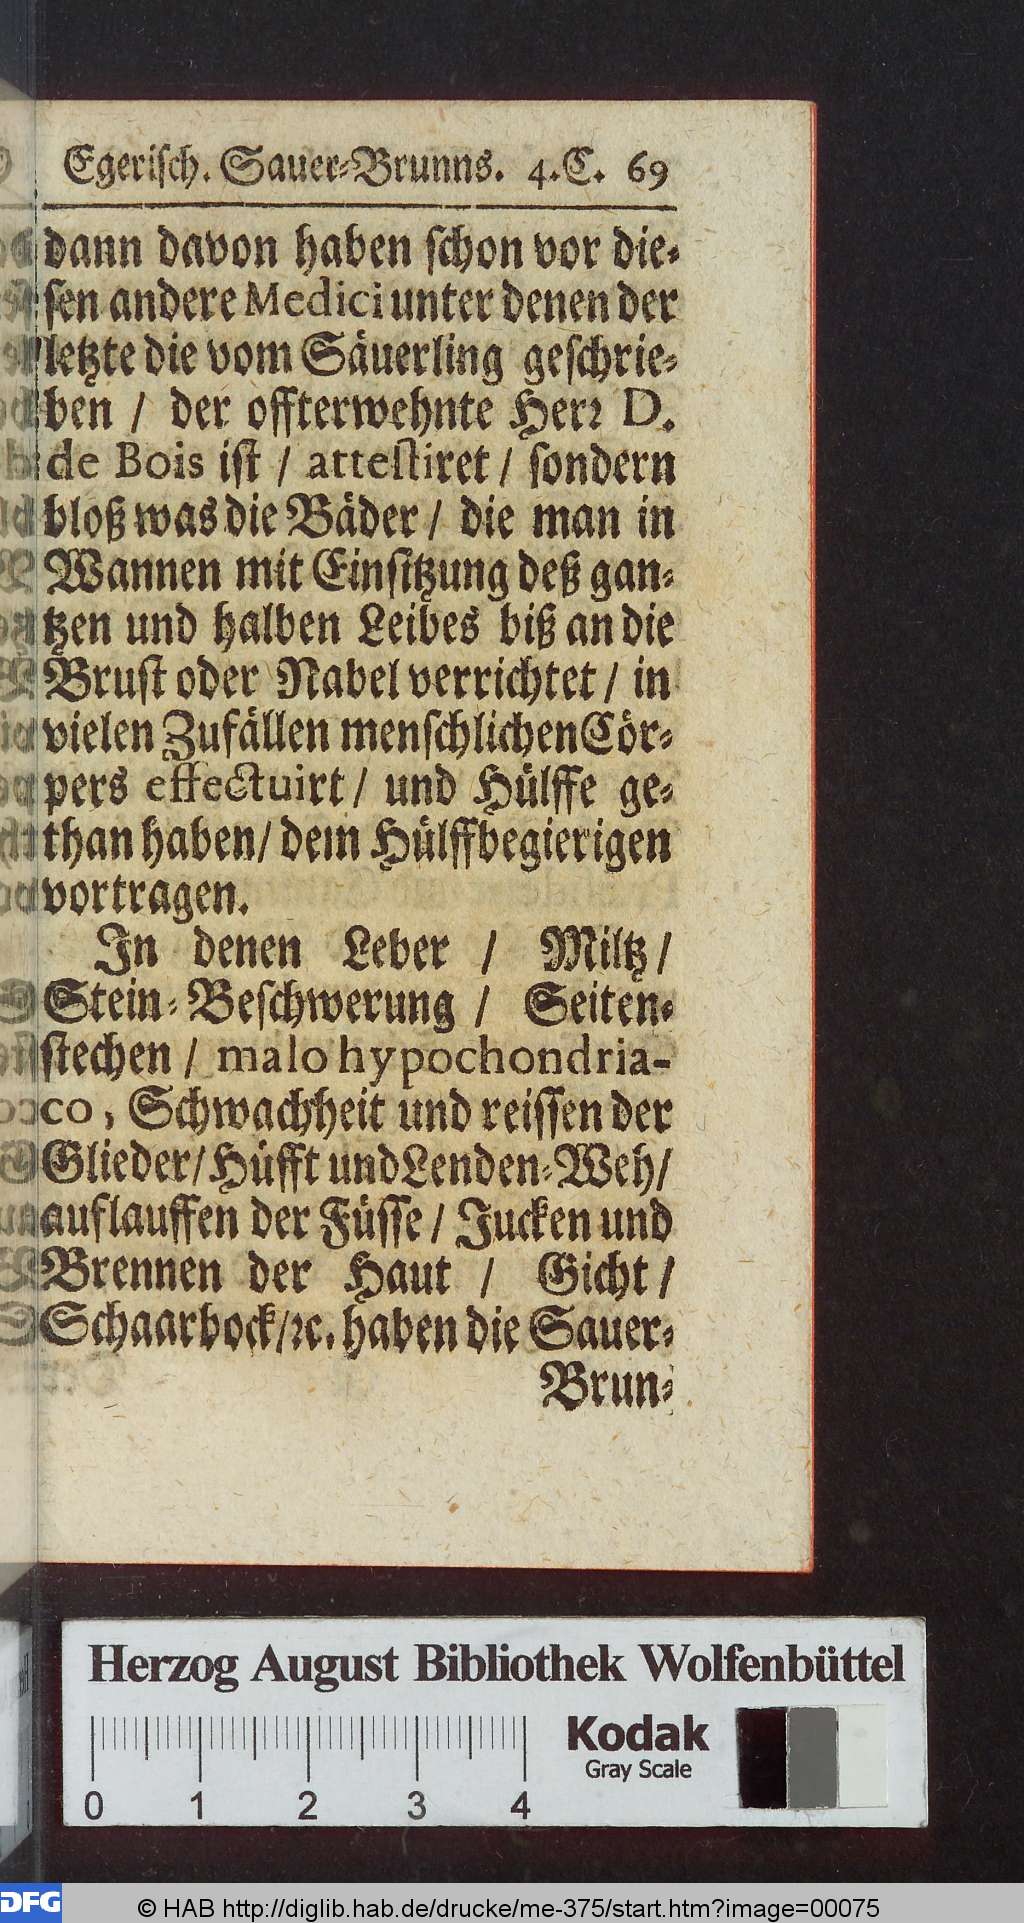 Egerisch. Sauer-Brunns. 4.C. 69
dann davon haben schon vor die-
sen andere Medici unter denen der
letzte die vom Säuerling geschrie-
ben / der offterwehnte Herr D.
de Bois ist / attestiret / sondern
bloß was die Bäder / die man in
Wannen mit Einsitzung deß gan-
tzen und halben Leibes biß an die
Brust oder Nabel verrichtet / in
vielen Zufällen menschlichen Cör-
pers effectuirt / und Hülffe ge-
than haben / dem Hülffbegierigen
vortragen.
In denen Leber / Miltz /
Stein-Beschwerung / Seiten-
stechen / malo hypochondria-
co, Schwachheit und reissen der
Glieder / Hüfft und Lenden-Weh /
auflauffen der Füsse / Jucken und
Brennen der Haut / Gicht /
Schaarbock / ꝛc. haben die Sauer-
Brun-
Herzog August Bibliothek Wolfenbüttel
Kodak
Gray Scale
0 1 2 3 4
DFG
© HAB http://diglib.hab.de/drucke/me-375/start.htm?image=00075